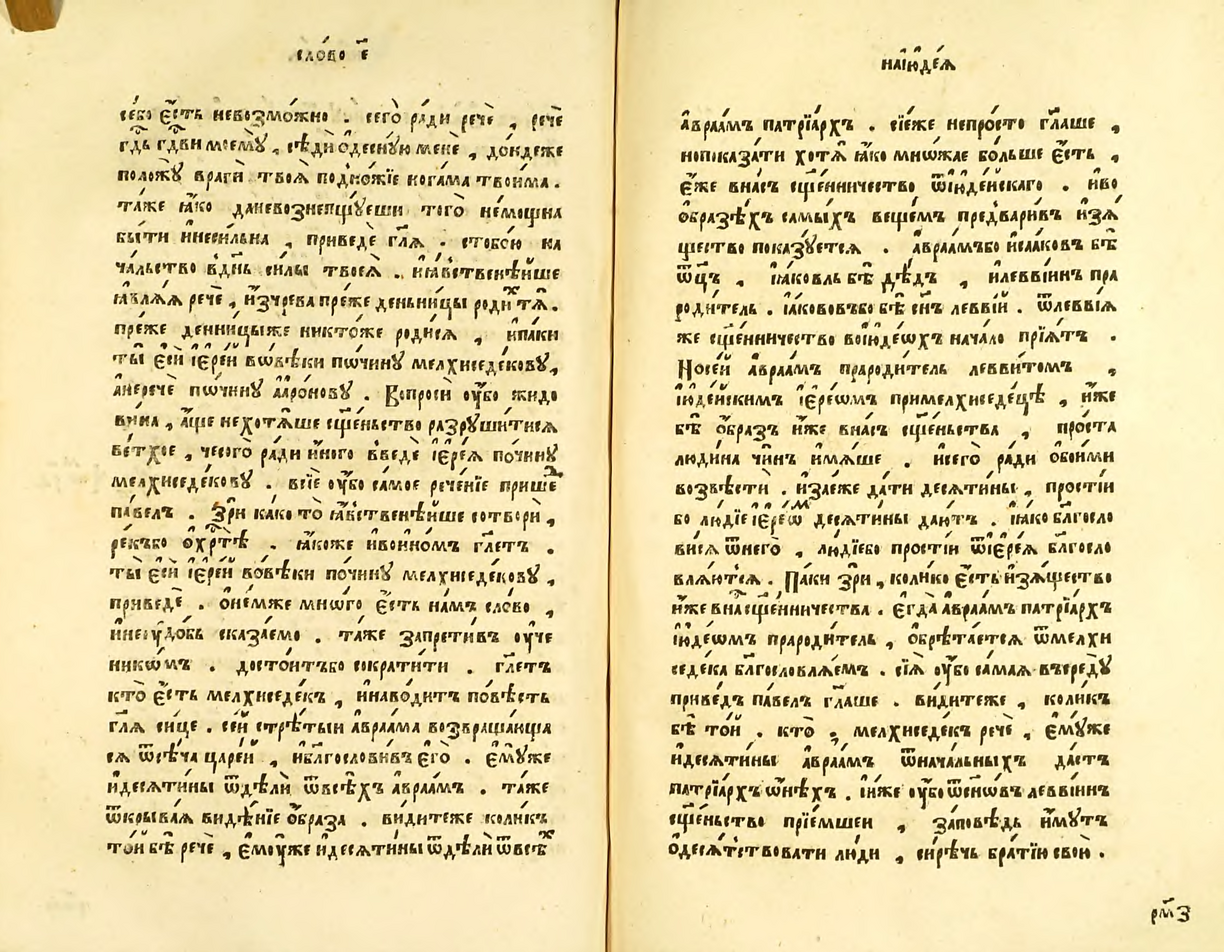 сло́во є҃
себо̀ є҆́сть невозмо́жно . сего̀ ра́ди речѐ , речѐ
гд҇ь гд҇ви моемꙋ̀ , сѣдѝ ѡ҆деснꙋ́ю менѐ , до́ндеже
положꙋ̀ врагѝ твоѧ̀ подно́жїе нога́ма твои́ма .
та́же ꙗ҆́ко даневознепщꙋ́еши того̀ не́мощна
бы́ти и҆неси́льна , приведѐ гл҃ѧ . стобо́ю на
ча́льство вд҃нь си́лы твоеѧ̀ . и҆ꙗ҆́вственѣйше
ꙗ҆влѧ́ѧ речѐ , и҆зчре́ва пре́же деньни́цы роди́хтѧ .
пре́же денни́цыже никто́же роди́сѧ , и҆па́ки
ты̀ є҆сѝ і҆ере́й вѡвѣ́ки пѡчи́нꙋ мелхиседе́ковꙋ ,
а҆неречѐ пѡчи́нꙋ а҆аро́новꙋ . Вопросѝ ᲂу҆́бо жидо
ви́на , а҆́ще нехотѧ́ше сщ҃е́ньство разрꙋши́тисѧ
ве́тхое , чесого̀ ра́ди и҆́ного введѐ і҆ере́ѧ почи́нꙋ
мелхиседе́ковꙋ . всїѐ ᲂу҆́бо са́мое рече́нїе прише́д
па́велъ . Зрѝ ка́ко то̀ ꙗ҆́вственѣйше сотворѝ ,
ре́къбо ѻ҆хр҇тѣ̀ . ꙗ҆́коже и҆во́и҆номъ гл҃етъ .
ты̀ є҆сѝ і҆ере́й вовѣ́ки почи́нꙋ мелхиседе́ковꙋ ,
приведѐ . ѻ҆не́мже мно́го є҆́сть на́мъ сло́во ,
и҆неᲂу҆до́бь сказа́емо . та́же запрети́въ ᲂу҆че
никѡ́мъ . досто́итъбо сократи́ти . гл҃етъ
кто̀ є҆́сть мелхиседе́къ , и҆наво́дитъ по́вѣсть
гл҃ѧ си́це . се́й стрѣ́тыи а҆враа́ма возвраща́юща
сѧ ѿсѣ́ча царе́й , и҆благослови́въ є҆го̀ . є҆мꙋ́же
и҆десѧти́ны ѿдѣлѝ ѿвсѣ́хъ а҆враа́мъ . та́же
ѿкрыва́ѧ видѣ́нїе ѻ҆́браза . ви́дитеже коли́къ
то́й бѣ̀ речѐ , є҆мᲂу́же и҆десѧти́ны ѿдѣлѝ ѿвсѣ́х
наі҆ꙋде́ѧ
а҆враа́мъ патрїа́рхъ . сїе́же непро́сто гл҃аше ,
нопоказа́ти хотѧ̀ ꙗ҆́ко мно́жае бо́льше є҆́сть ,
є҆́же вна́съ сщ҃е́нничество ѿі҆ꙋде́йскаго . и҆́бо
ѻ҆́бразѣхъ самы́хъ веще́мъ предвари́въ и҆зѧ́
щество пока́зꙋетсѧ . а҆враа́мъбо и҆са́аковъ бѣ̀
ѻ҆ц҃ъ , і҆а́ковль бѣ̀ дѣ́дъ , и҆левві́инъ пра
роди́тель . і҆а́кововъбо бѣ̀ сн҃ъ левві́й . ѿлевві́ѧ
же сщ҃е́нничество воі҆ꙋде́ѡхъ нача́ло прїѧ́тъ .
Носе́й а҆враа́мъ прароди́тель левви́томъ ,
і҆ꙋде́йскимъ і҆ере́ѡмъ примелхиседе́цѣ , и҆́же
бѣ̀ ѻ҆́бразъ и҆́же вна́съ сщ҃е́ньства , про́ста
лю́дина чи́нъ и҆мѧ́ше . и҆сего̀ ра́ди ѻ҆бои́ми
возвѣстѝ . и҆зле́же да́ти десѧти́ны , простїи
бо лю́дїе і҆ере́ѡм десѧти́ны даю́тъ . ꙗ҆́ко бл҃госло
ви́сѧ ѿнего̀ , лю́дїебо простїи ѿі҆ере́ѧ бл҃госло
влѧ́ютсѧ . Па́ки зрѝ , коли́ко є҆́сть и҆зѧ́щество
и҆́же вна́сщ҃е́нничества . є҆гда̀ а҆враа́мъ патрїа́рхъ
і҆ꙋде́ѡмъ прароди́тель , ѻ҆брѣта́етсѧ ѿмелхи
седе́ка бл҃гословлѧ́емъ . сїѧ̀ ᲂу҆́бо са́маѧ въ҆редꙋ̀
приве́дъ па́велъ гл҃аше . ви́дитеже , коли́къ
бѣ̀ то́й . кто̀ , мелхиседе́къ речѐ , є҆мꙋ́же
и҆десѧти́ны а҆враа́мъ ѿнача́льныхъ да́стъ
патрїа́рхъ ѡ҆нѣ́хъ . і҆и҆́же ᲂу҆́бо ѿсыно́въ левві́инъ
сщ҃е́ньство прїе́мшеи , за́повѣдь и҆́мꙋтъ
ѻ҆десѧ́тствовати лю́ди , си́рѣчь бра́тїю свою̀ .
рм҃з